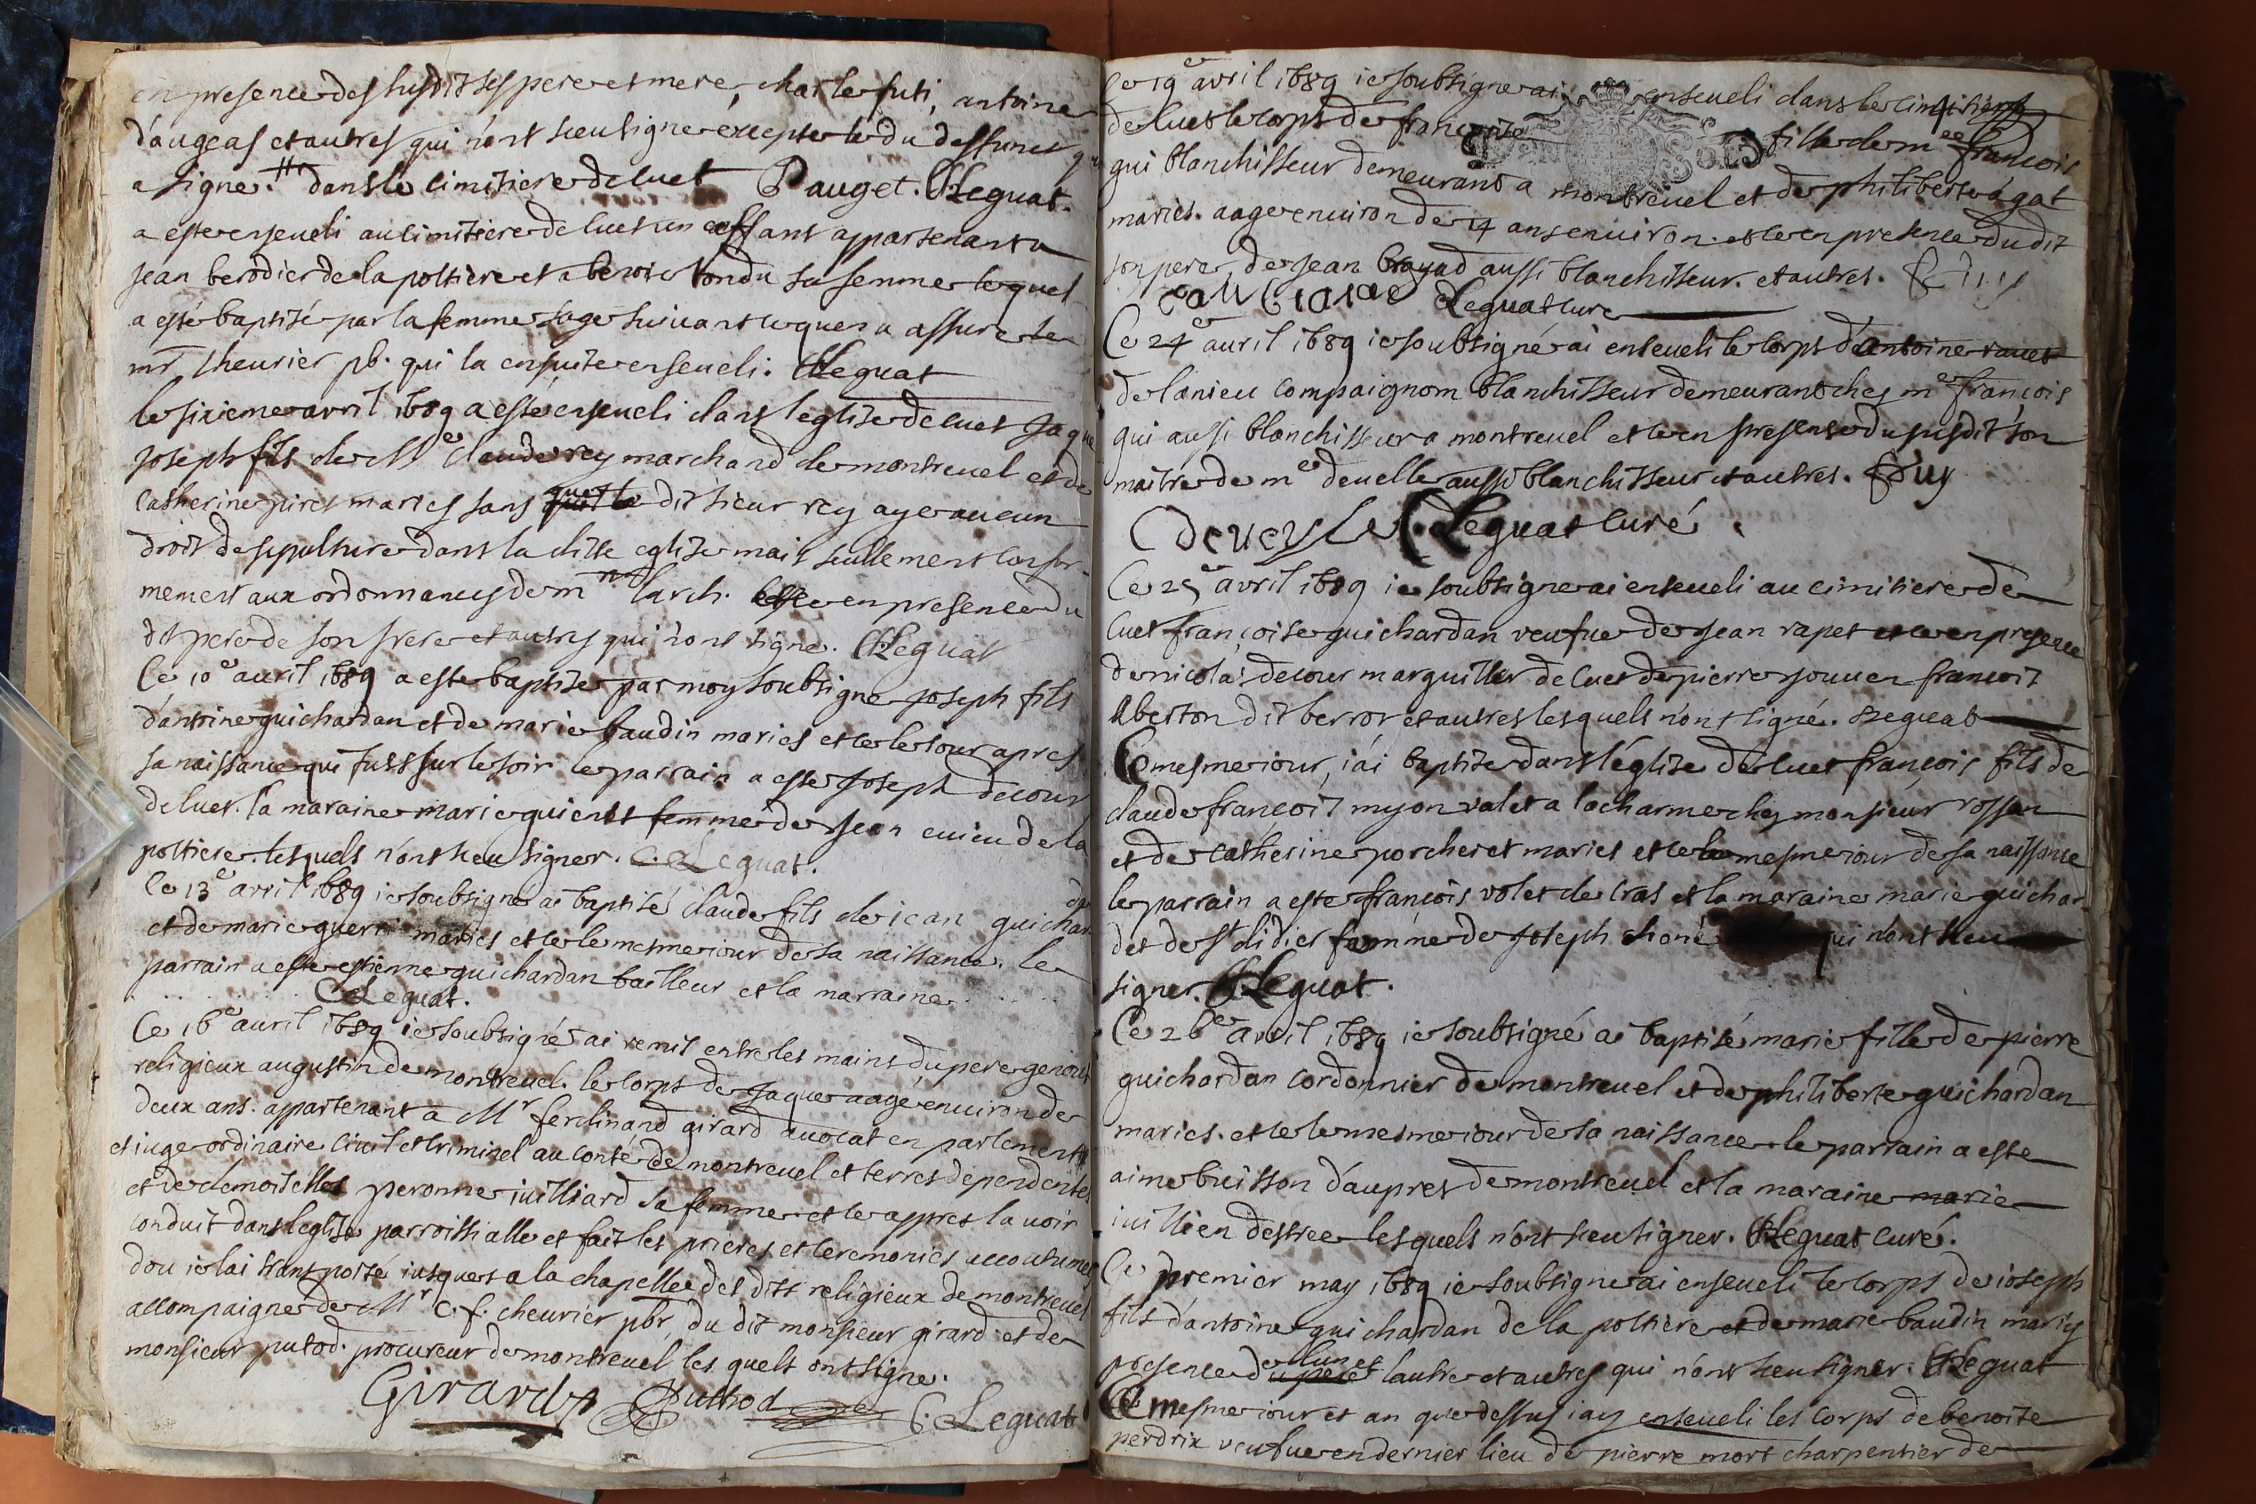 en presence des susdits ses pere et mere, charle futi, antoine
d'augeas et autres qui n'ont sceu signer excepte le du deffunct qui
a signe. dans le cimitiere de cuet Pauget. CLeguat.
a este enseveli au cimitiere de cuet un enffant appartenant a
jean berodier de la poltiere et a benoite tondu sa femme lequel
a esté baptisé par la femme sage suivant ce quen a assure le
mr cheurier pb. qui la ensuite enseveli. CLeguat
le sixieme avril 1689 a este enseveli dans leglise de cuet Jaque
joseph fils de Me claude rey marchand de montrevel et de
catherine piret maries sans que le dit sieur rey aye aucun
droit de sepulture dans la ditte eglise mais seullement confor-
mement aux ordonnances de mr larch. et ce en presence du
dt pere de son frere et autres qui n'ont signe. CLeguat
Ce 10e avril 1689 a este baptise par moy soubsigne joseph fils
d'antoine guichardan et de marie baudin maries et ce le jour apres
sa naissance qui fust sur le soir le parrain a este Joseph decour
de cuet. la maraine marie quienst femme de Jean cuieu de la
poltiere. lesquels n'ont sceu signer. C. Leguat.
Ce 13e avril 1689 je soubsigne ai baptisé claude fils de jean guichar
dan
et de marie guerri maries et ce le mesme jour de sa naissance. le
parrain a este estienne guichardan tailleur et la marraine
CLeguat.
Ce 16e avril 1689 je soubsigné ai remit entre les mains du pere genout
religieux augustin de montrevel. le corps de jaque aagé environ de
deux ans. appartenant a Mr ferdinand girard avocat en parlement
et juge ordinaire civil et criminel au conté de montrevel et terres dependentes
et de demoiselles peronne juilliard sa femme. et ce appres lavoir
conduit dans leglise parroissialle et fait les prieres et ceremonies accoutumes
dou je lai transporté jusques a la chapelle des dits religieux de montrevel
accompaigne de Mr c. f. cheurier pbr, du dit monsieur girard et de
monsieur putod. procureur de montrevel les quels ont signe.
Girard Puthod C. Leguat
Ce 19e avril 1689 je soubsigne ai enseveli dans le cimitiere
de cuet le corps de francoise fille de me francois
gui blanchisseur demeurant a montrevel et de philiberte ágat
maries. aage environ de 14 ans environ. et ce en presence du dit
son pere, de jean brayad aussi blanchisseur. et autres.
CLeguat cure
Ce 24e avril 1689 je soubsigné ai enseveli le corps d'antoine ravet
de lanieu compaignom blanchisseur demeurant ches me francois
gui aussi blanchisseur a montrevel et ce en presence du susdit son
maitre de me develle aussi blanchisseur et autres. f Guy
Deveyle CLeguat curé
Ce 25e avril 1689 je soubsigne ai enseveli au cimitiere de
Cuet francoise guichardan veufue de jean rapet et ce en presence
de nicolas decour marguillier de cuet de pierre jouuen francois
Aberton dit berrot et autres lesquels n'ont signé. CLeguat
Ce mesme jour, j'ai baptise dans l'église de cuet françois fils de
claude françois myon valet a la charme chez monsieur rossan
et de catherine porcheret maries et ce le mesme jour de sa naissance
le parrain a este françois volet de cras et la maraine marie guichar-
det de st didier femme de joseph choné qui n'ont sceu
signer. CLeguat.
Ce 26e avril 1689 je soubsigné ai baptisé marie fille de pierre
guichardan cordonnier de montrevel et de philiberte guichardan
maries. et ce le mesme jour de sa naissance. le parrain a este
aime buisson d'aupres de montrevel et la maraine marie
juillien destree lesquels n'ont sceu signer. CLeguat curé.
Ce premier may 1689 je soubsigne ai enseveli le corps de joseph
fils d'antoine guichardan de la poltiere et de marie baudin maries
presence de lun et lautre et autres qui n'ont sceu signer. CLeguat
Ce mesme jour et an que dessus j'ay enseveli les corps de benoite
perdrix veufue en dernier lieu de pierre mort charpentier de